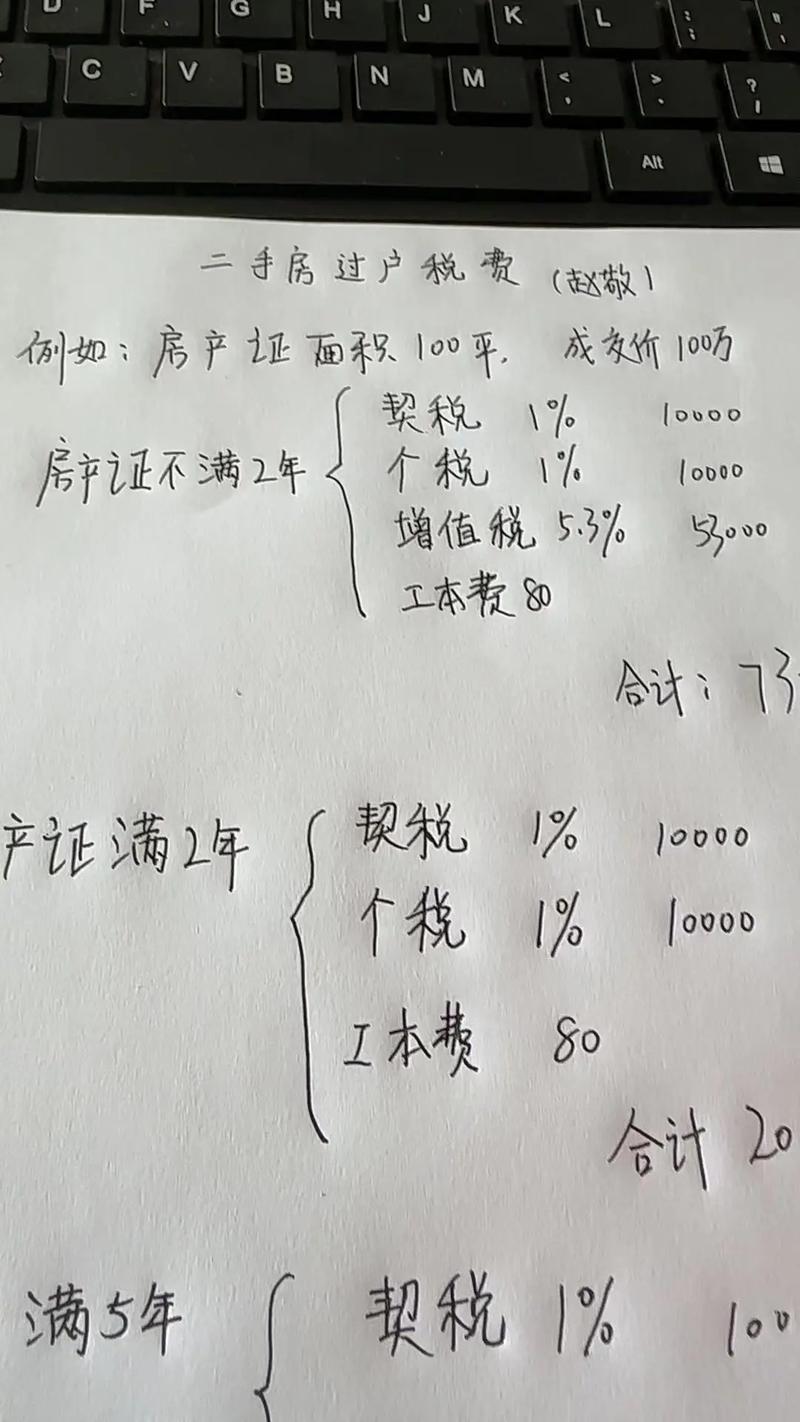 D F G H J K L : ;
C V B N M < , > . ? /
Alt
二手房过户税费 (赵敬)
例如: 房产证面积100平, 成交价100万
房产证不满2年
契税 1% 10000
个税 1% 10000
增值税 5.3% 53000
工本费 80
合计: 73
产证满2年
契税 1% 10000
个税 1% 10000
工本费 80
合计 20
满5年
契税 1% 100